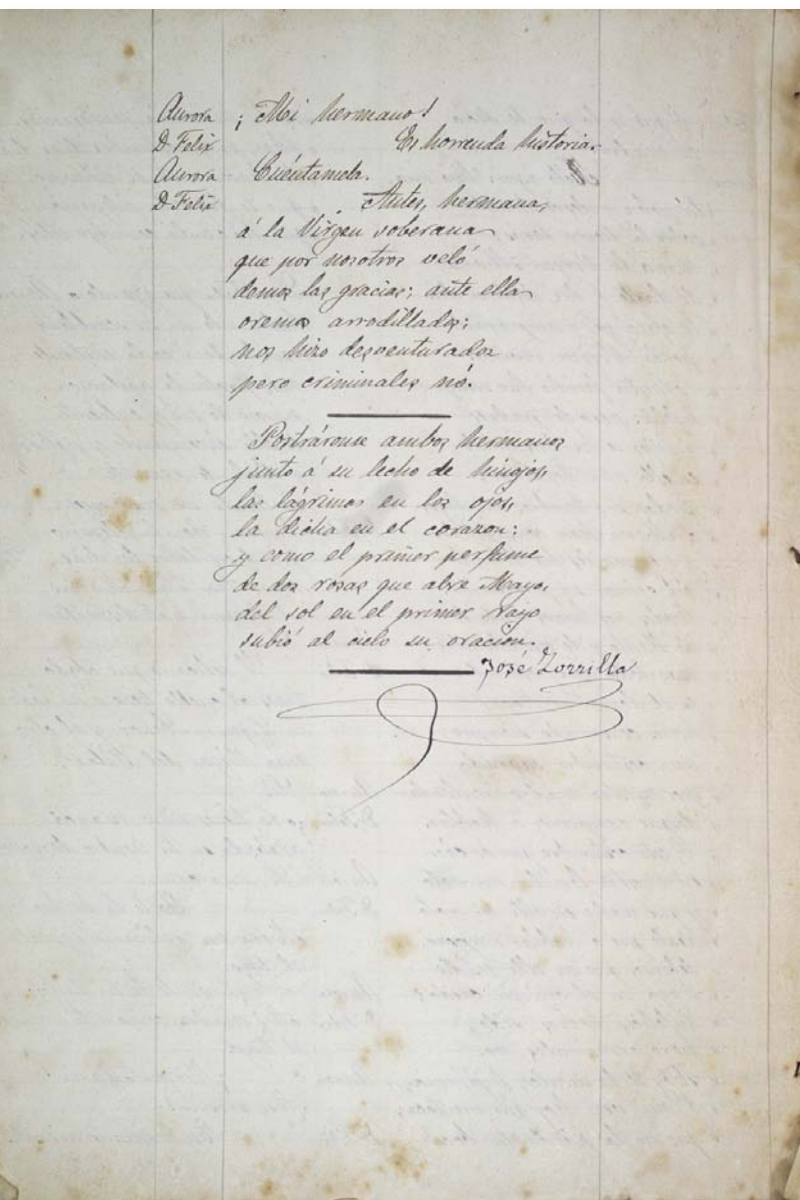 Aurora ¡Mi hermano!
D. Felix Es horrenda historia.
Aurora Cuéntamela.
D. Felix Antes, hermana,
á la Virgen soberana
que por nosotros veló
demos las gracias; ante ella
oremos arrodillados;
nos hizo desventurados
pero criminales nó.
Postráronse ambos hermanos
junto á su lecho de hinojos,
las lágrimas en los ojos,
la dicha en el corazon:
y como el primer perfume
de dos rosas que abre Mayo,
del sol en el primer rayo
subió al cielo su oracion.
José Zorrilla